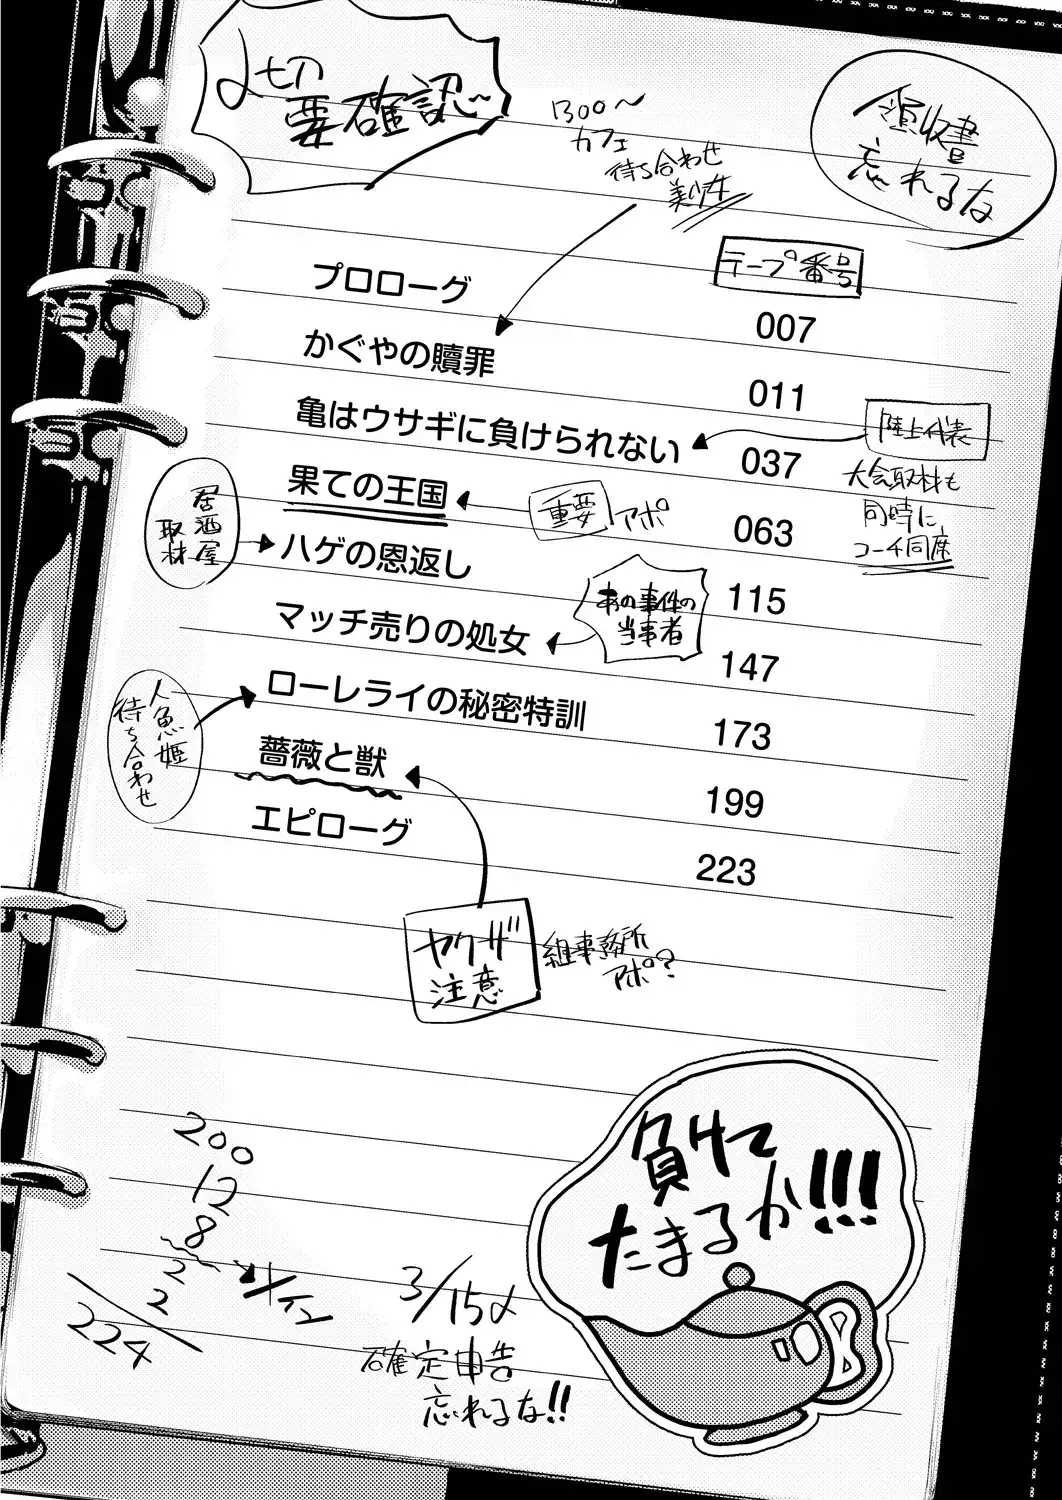 〆切
要確認〜
1300〜
カフェ
待ち合わせ
美少女
領収書
忘れるな
テープ番号
プロローグ 007
かぐやの贖罪 011
亀はウサギに負けられない 037
陸上代表
大会取材も
同時に、
コーチ同席
果ての王国 063
重要 アポ
居酒屋
取材
ハゲの恩返し 115
あの事件の
当事者
マッチ売りの処女 147
人魚姫
待ち合わせ
ローレライの秘密特訓 173
薔薇と獣 199
エピローグ 223
ヤクザ
注意
組事務所
アポ?
負けて
たまるか!!!
200
12
8
2
2
224
3/15〆
確定申告
忘れるな!!